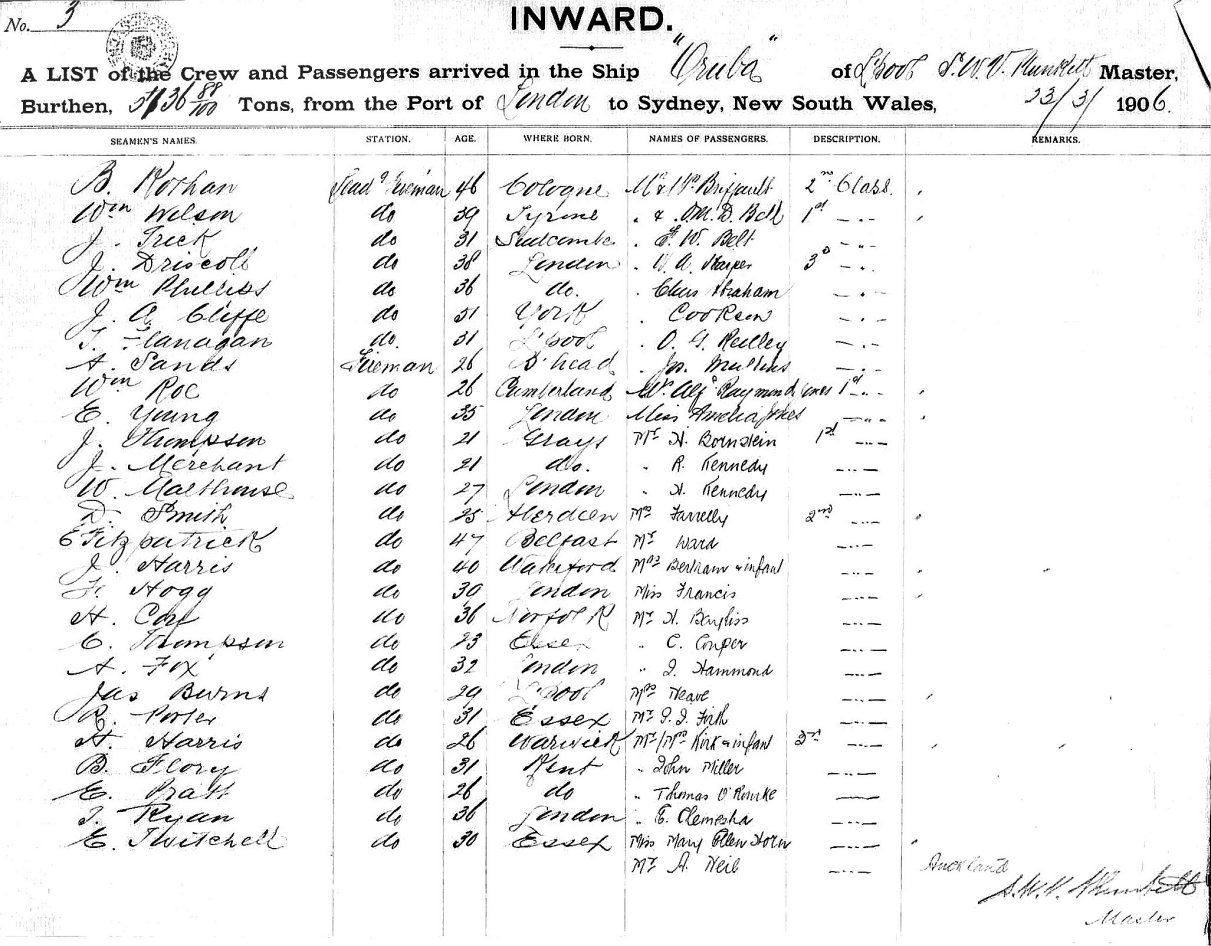 No. 3
INWARD.
A LIST of the Crew and Passengers arrived in the Ship "Oruba" of L'pool S. W. V. Plunkett Master,
Burthen, 5736 88/100 Tons, from the Port of London to Sydney, New South Wales, 23/3/ 1906.
SEAMEN'S NAMES. STATION. AGE. WHERE BORN. NAMES OF PASSENGERS. DESCRIPTION. REMARKS.
B. Rothan Leadg Fireman 46 Cologne Mr & Mrs Briffault 2nd Class.
Wm Wilson do 39 Tyrone " & M. D. Bell 1st -..-
J. Trick do 31 " E. W. Belt -..-
J. Driscoll do 38 London " W. A. Harper 3d -..-
Wm Phillips do 36 do. " Chas Abraham -..-
J. A. Cliffe do 31 York " Cookson -..-
T. Flanagan do. 31 L'pool " O. G. Reilley -..-
A. Sands Fireman 26 B'head " Jas. Mullins -..-
Wm Roe do 26 Cumberland Mr. Alfd Raymond Jones 1st -..-
E. Young do 35 London Miss Amelia Jones -..-
J. Thompson do 21 Grays Mr H. Bornstein 1st -..-
J. Merchant do 21 do. " R. Kennedy -..-
W. Malthouse do 27 London " H. Kennedy -..-
D. Smith do 25 Aberdeen Mrs Farrelly 2nd -..-
E Fitzpatrick do 47 Belfast Mr Ward -..-
J. Harris do 40 Wateford Mrs Bertham & infant -..-
F. Hogg do 39 London Miss Francis -..-
H. Cox do 36 Norfolk Mr H. Bayliss -..-
C. Thompson do 23 Essex " C. Couper -..-
A. Fox do 32 London " J. Hammond -..-
Jas Burns do 29 L'pool Mrs Neave -..-
R. Porter do 31 Essex Mr J. J. Firth -..-
H. Harris do 26 Warwick Mr/Mrs Kirk & infant 3rd -..-
B. Flory do 31 Kent " John Miller -..-
E. Pratt do 26 do " Thomas O'Rourke -..-
T. Ryan do 36 London " E. Clemesha -..-
E. Twitchell do 30 Essex Miss Mary Ellen Horn -..-
Mr A. Neil -..- Auckland
S. W. V. Plunkett
Master